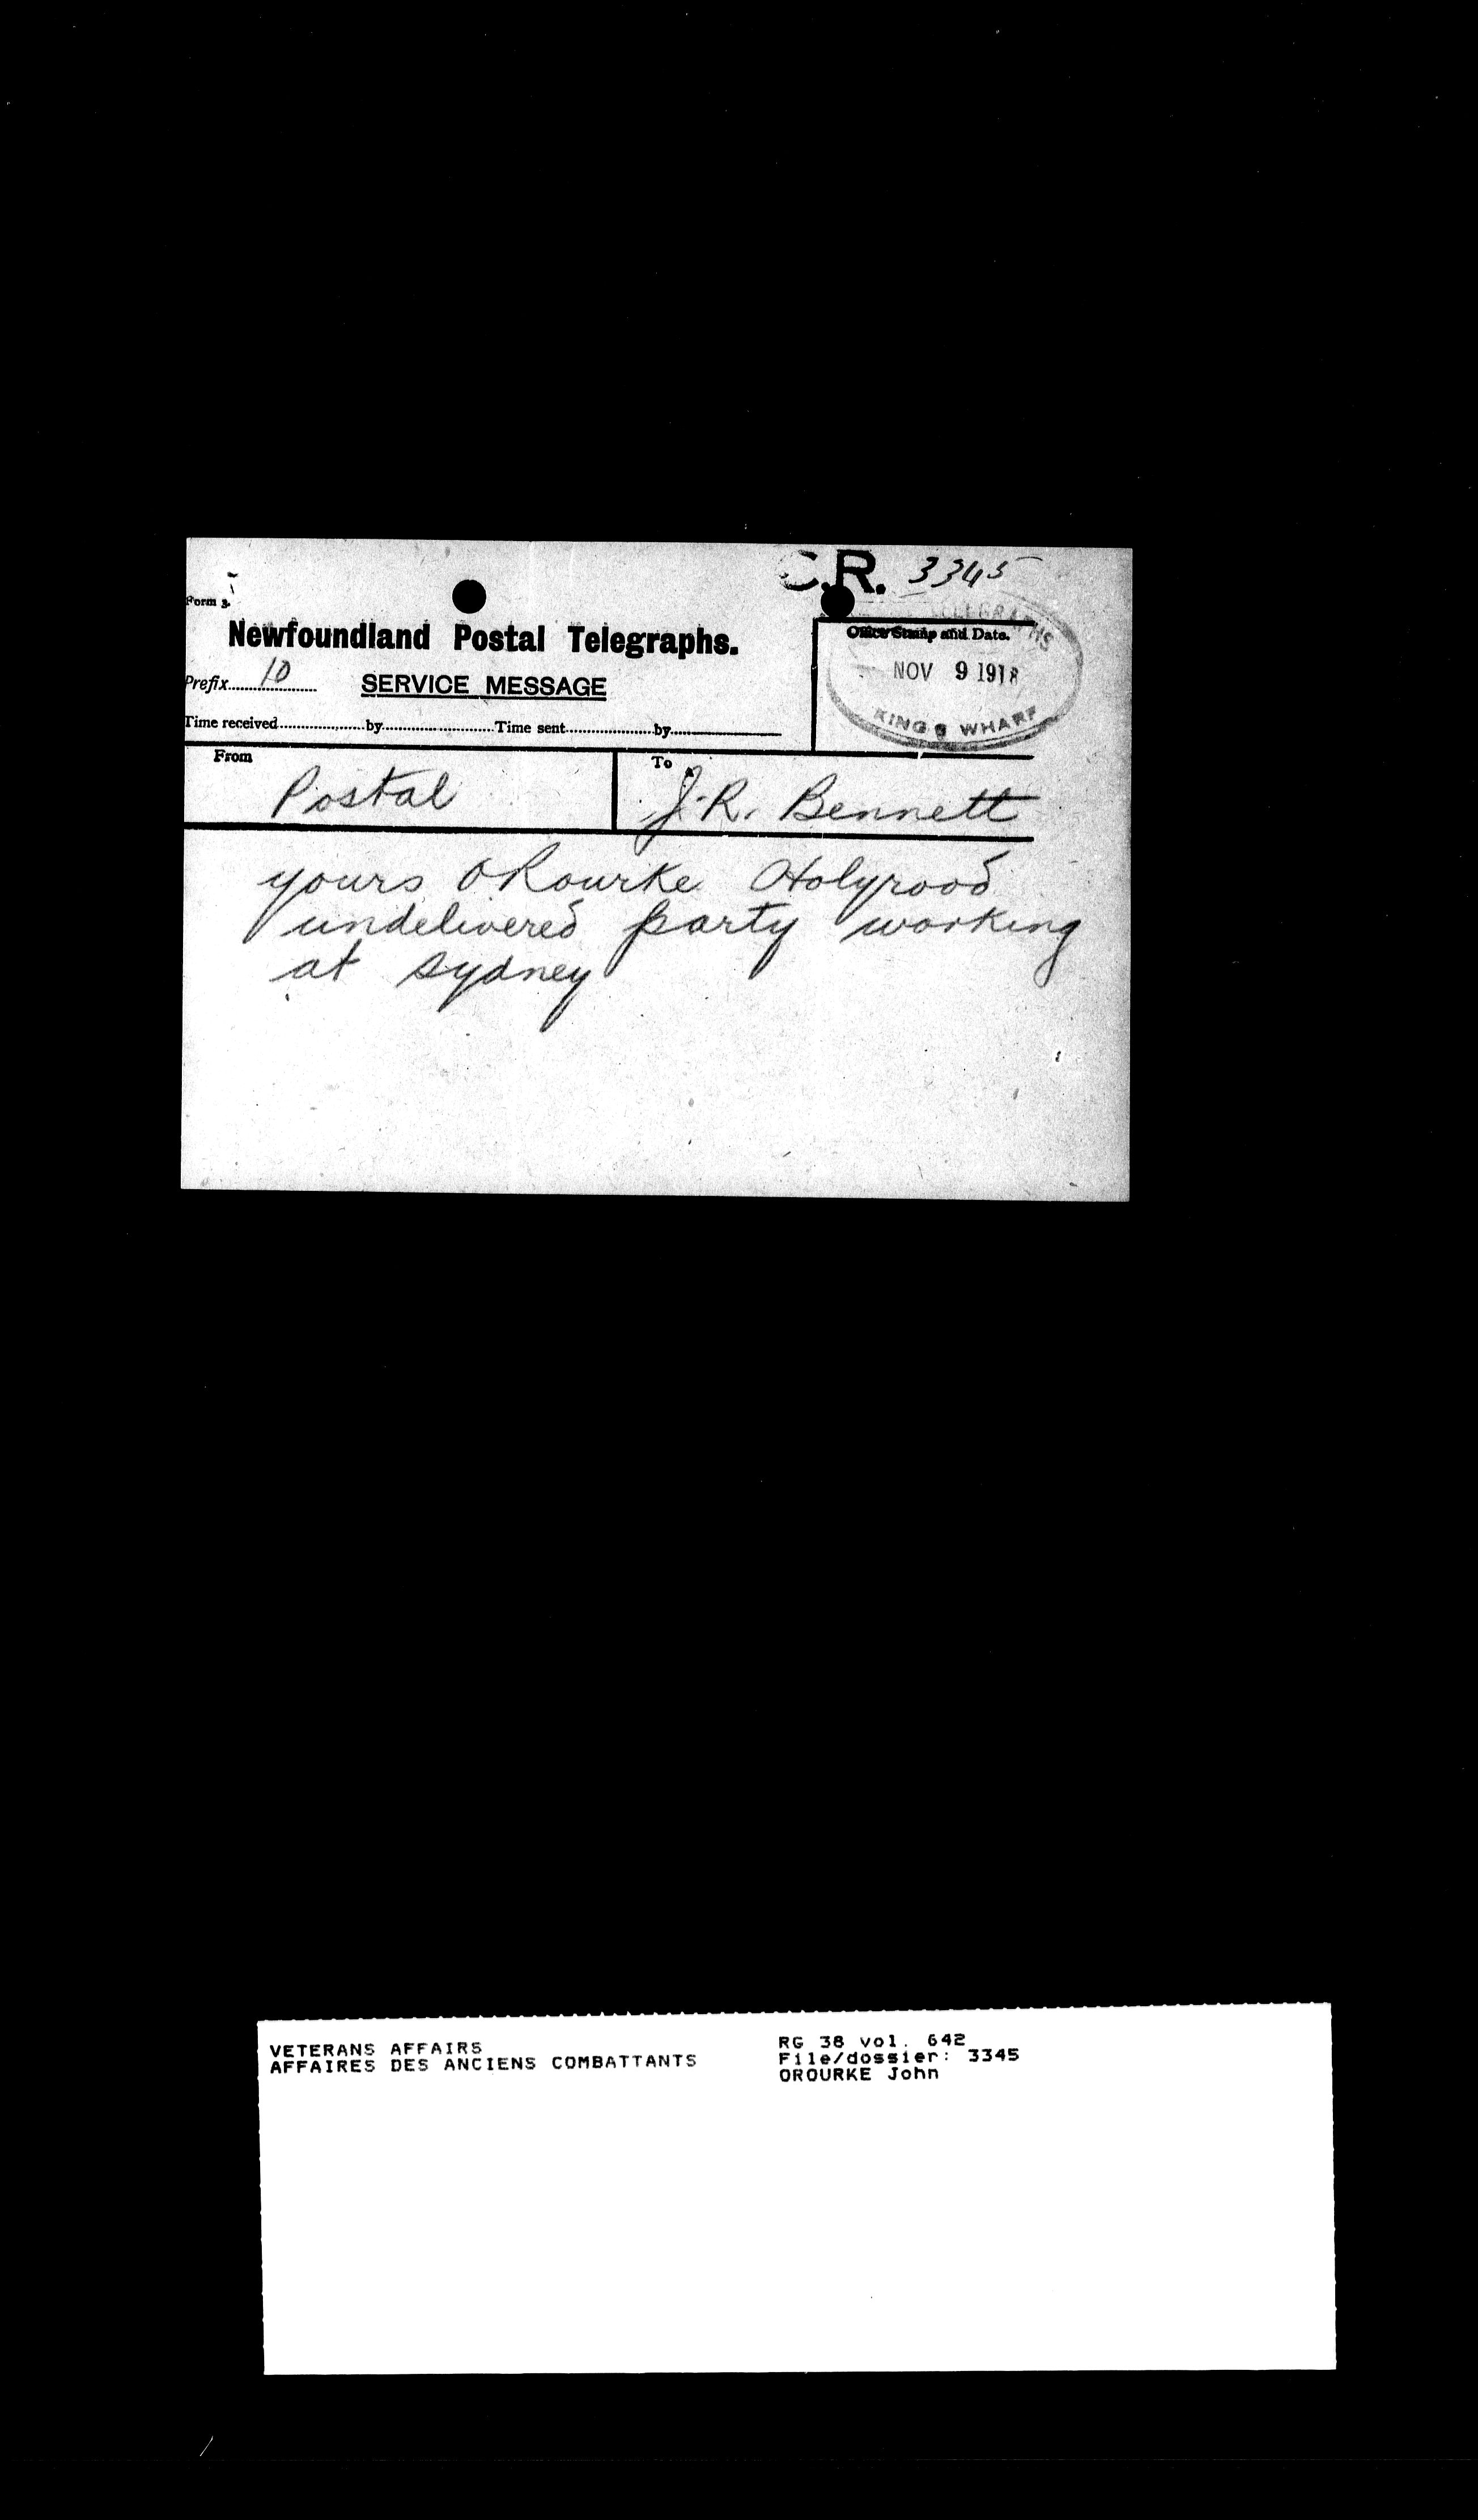 C.R. 3345
Form 3.
Newfoundland Postal Telegraphs.
Office Stamp and Date.
TELEGRAPHS
NOV 9 1918
KING'S WHARF
Prefix 10
SERVICE MESSAGE
Time received by Time sent by
From
Postal
To
J.R. Bennett
yours ORourke Holyrood
undelivered party working
at Sydney
VETERANS AFFAIRS
AFFAIRES DES ANCIENS COMBATTANTS
RG 38 vol. 642
File/dossier: 3345
OROURKE John